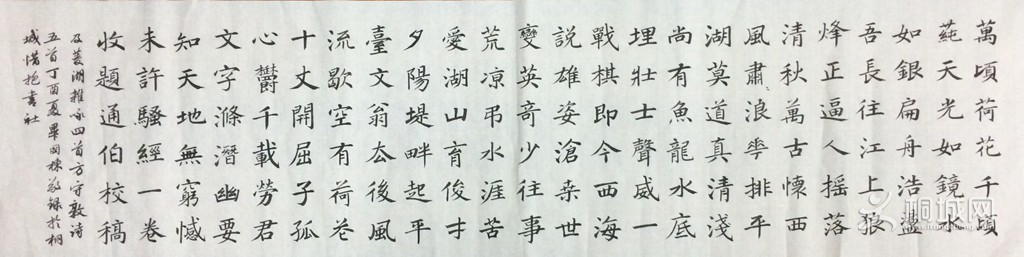 萬頃荷花千頃
蒓天光如鏡水
如銀扁舟浩盪
吾長往江上狼
烽正逼人搖落
清秋萬古懷西
風肅浪華排平
湖莫道真清淺
尚有魚龍水底
埋壯士聲威一
戰棋即今西海
説雄姿滄桒世
變英奇少往事
荒凉弔水涯苦
愛湖山育俊才
夕陽堤畔起平
臺文翁去後風
流歇空有荷花
十丈開屈子孤
心鬱千載勞君
文字滌潛幽要
知天地無窮憾
未許騷經一卷
收題通伯校稿
及菱湖雜詠四首方守敦詩
五首丁酉夏畢國棟敬録於桐
城惜抱書社
桐城网